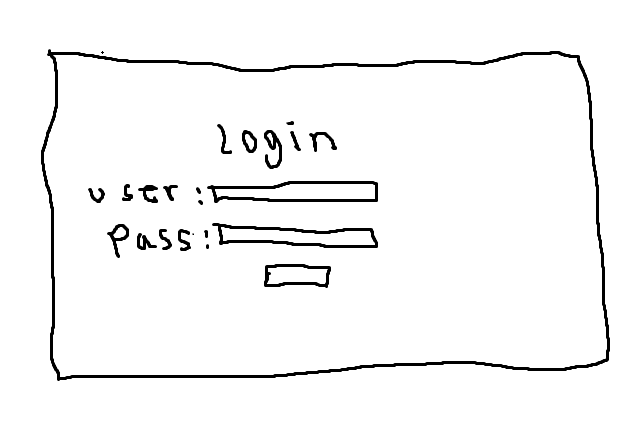 Login
user:
pass: